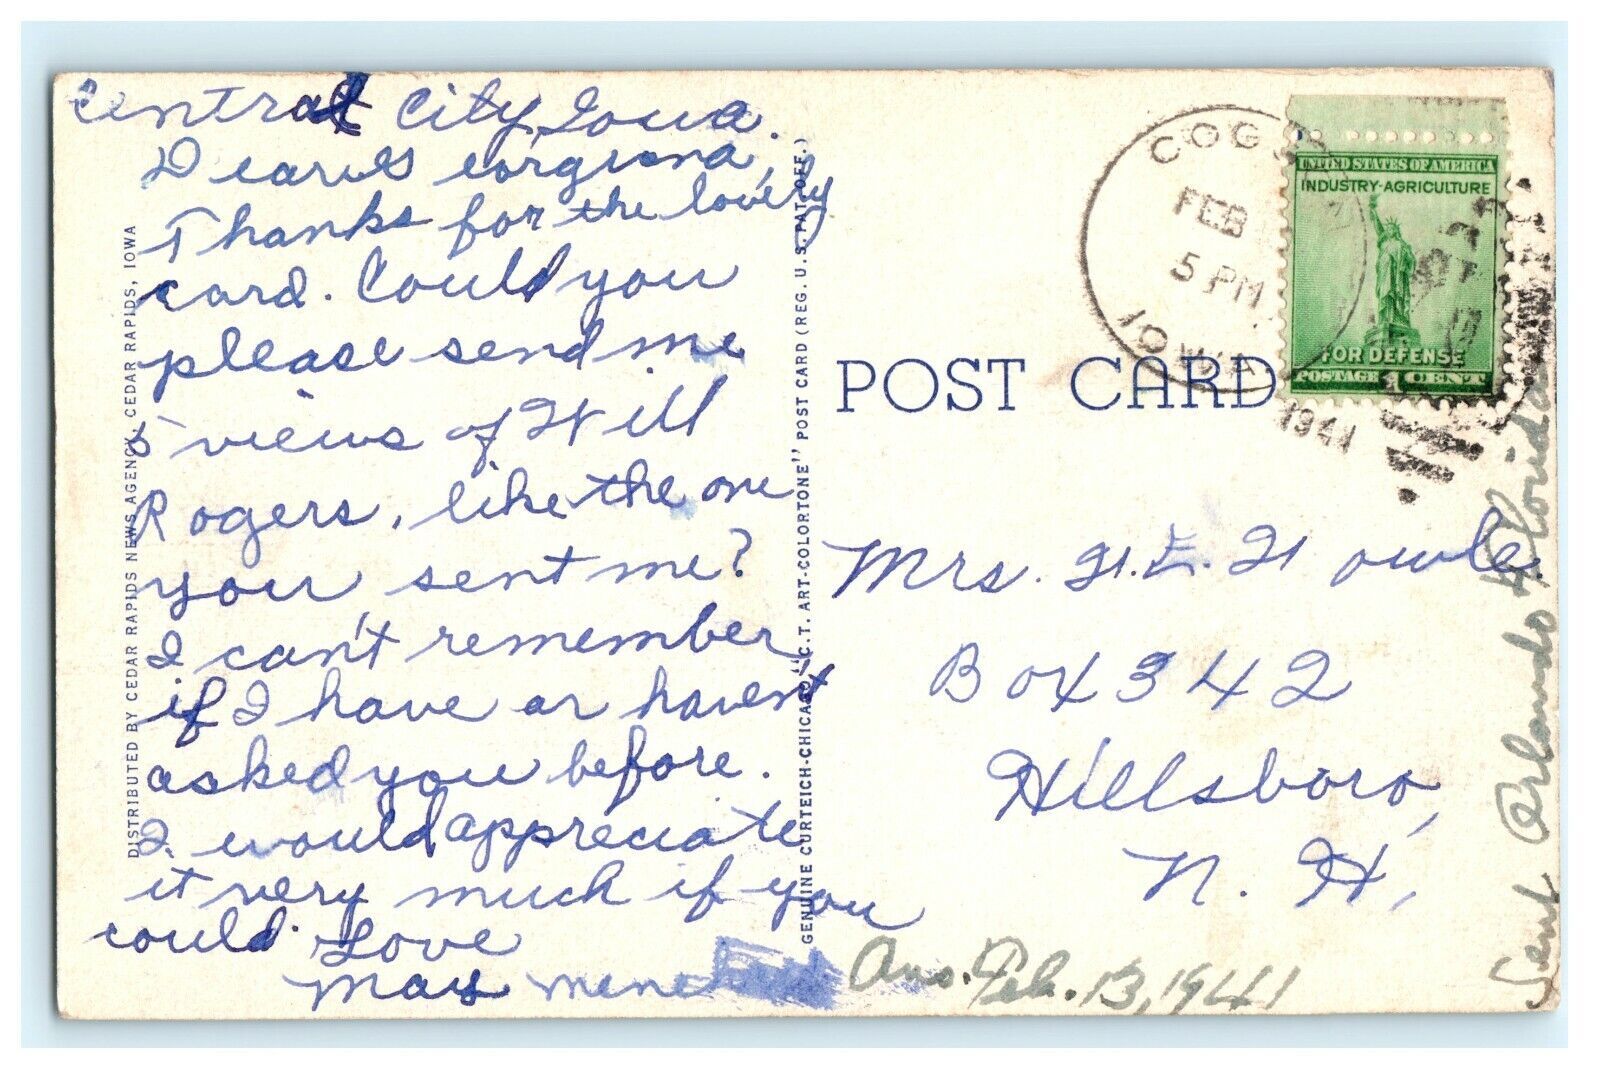 Central City, Iowa.
Dear Georgiana,
Thanks for the lovely
card. Could you
please send me
5 views of Will
Rogers, like the one
you sent me?
I can't remember
if I have or havent
asked you before.
I would appreciate
it very much if you
could. Love
May
DISTRIBUTED BY CEDAR RAPIDS NEWS AGENCY, CEDAR RAPIDS, IOWA
GENUINE CURTEICH-CHICAGO "C.T. ART-COLORTONE" POST CARD (REG. U.S. PAT. OFF.)
FEB
5 PM
IOWA
1941
UNITED STATES OF AMERICA
INDUSTRY-AGRICULTURE
FOR DEFENSE
POSTAGE 1 CENT
POST CARD
Mrs. H. E. Fowle
Box 342
Hillsboro,
N. H.
Ans. Feb. 13, 1941
Sent Orlando Florida